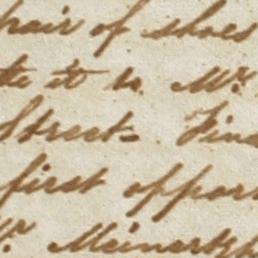 hair of shoes
te it to Mr.
Street. Find
first oppor
Mr. Meinertzh